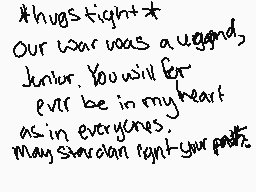 *hugs tight*
our war was a legend,
Junior. You will for
ever be in my heart
as in everyones.
May starclan light your path.